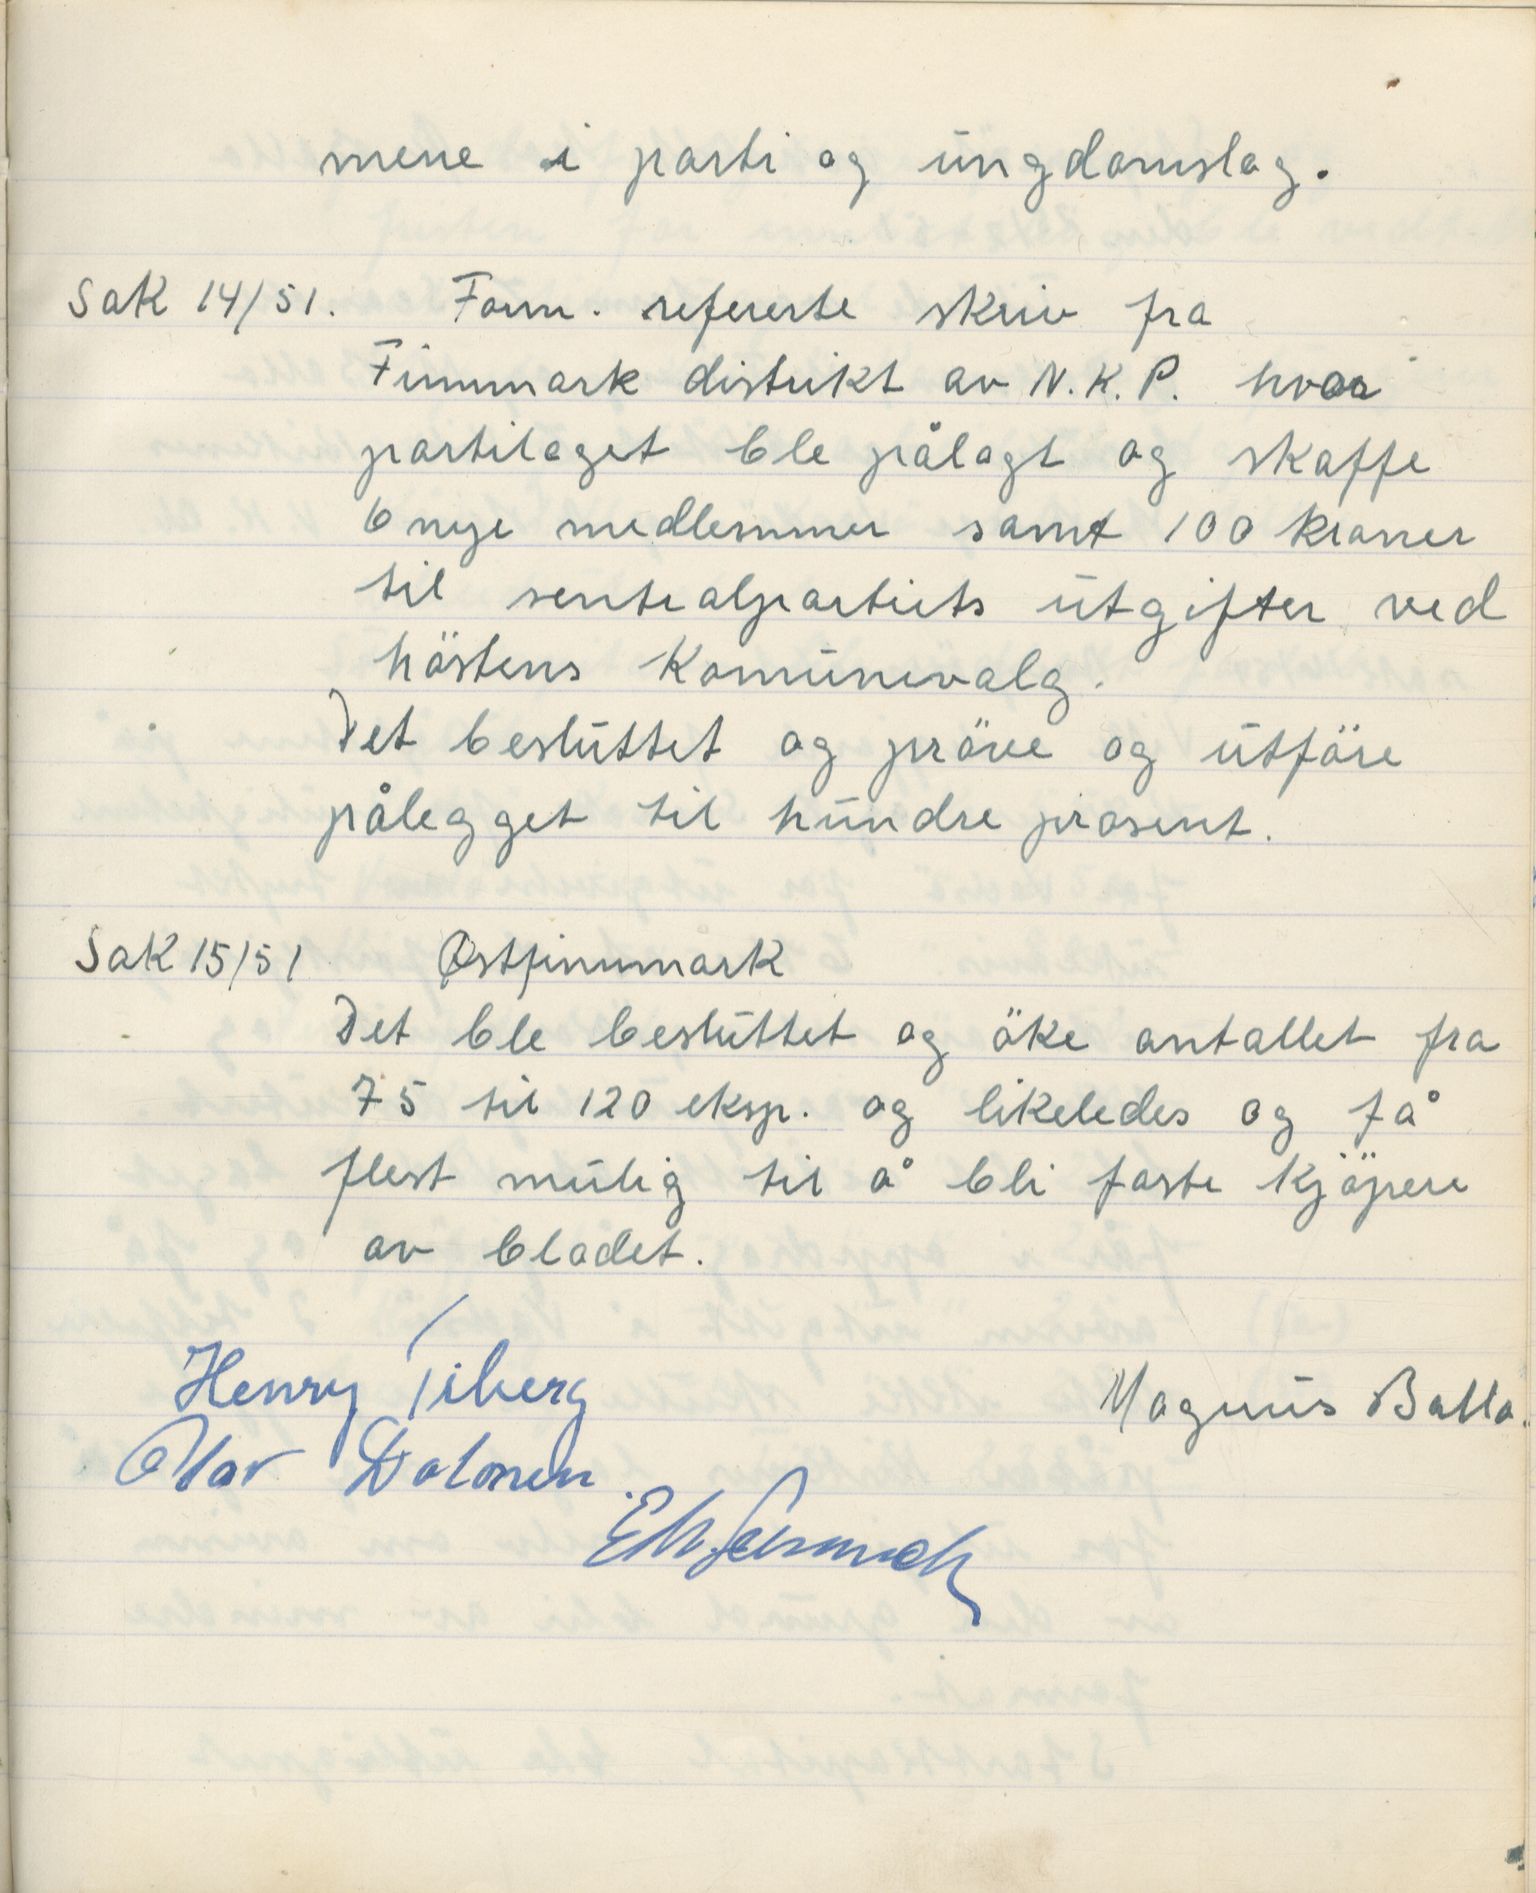 mene i parti og ungdomslag.
Sak 14/51. Form. refererte skriv fra
Finnmark distrikt av N.K.P. hvor
partilaget ble pålagt og skaffe
6 nye medlemmer samt 100 kroner
til sentralpartiets utgifter ved
höstens Komunevalg.
Det besluttet og pröve og utföre
pålegget til hundre prosent.
Sak 15/51 Østfinnmark
Det ble besluttet og öke antallet fra
75 til 120 eksp. og likeledes og få
flest mulig til å bli faste kjöpere
av bladet.
Henry Tiberg
Magnus Balto.
Olav Dalonen.